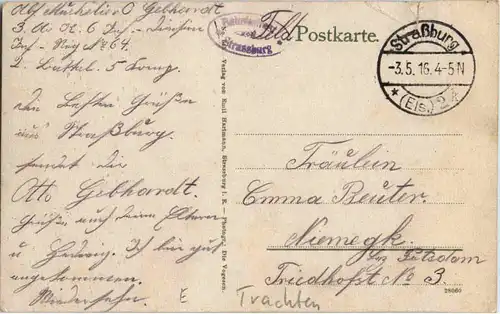 Abs. Musketier O Gebhardt
3. A. K. 6 Inf - Division
Inf - Reg No 64.
2. Battl. 5 Komp.
Die Besten Grüße
aus Straßburg.
sendet Dir
Otto Gebhardt.
Grüße auch deine Eltern
u Hedwig. Ich bin gut
angekommen.
Wiedersehn.
E
Bahnhofs
Strassburg
Feld Postkarte.
Straßburg
-3.5.16.4-5N
* (Els.) 2
Verlag von Emil Hartmann, Strassburg i. E.
Fräulein
Emma Beuter.
Niemegk.
Bez Potsdam
Friedhofst No 3.
28060
Trachten